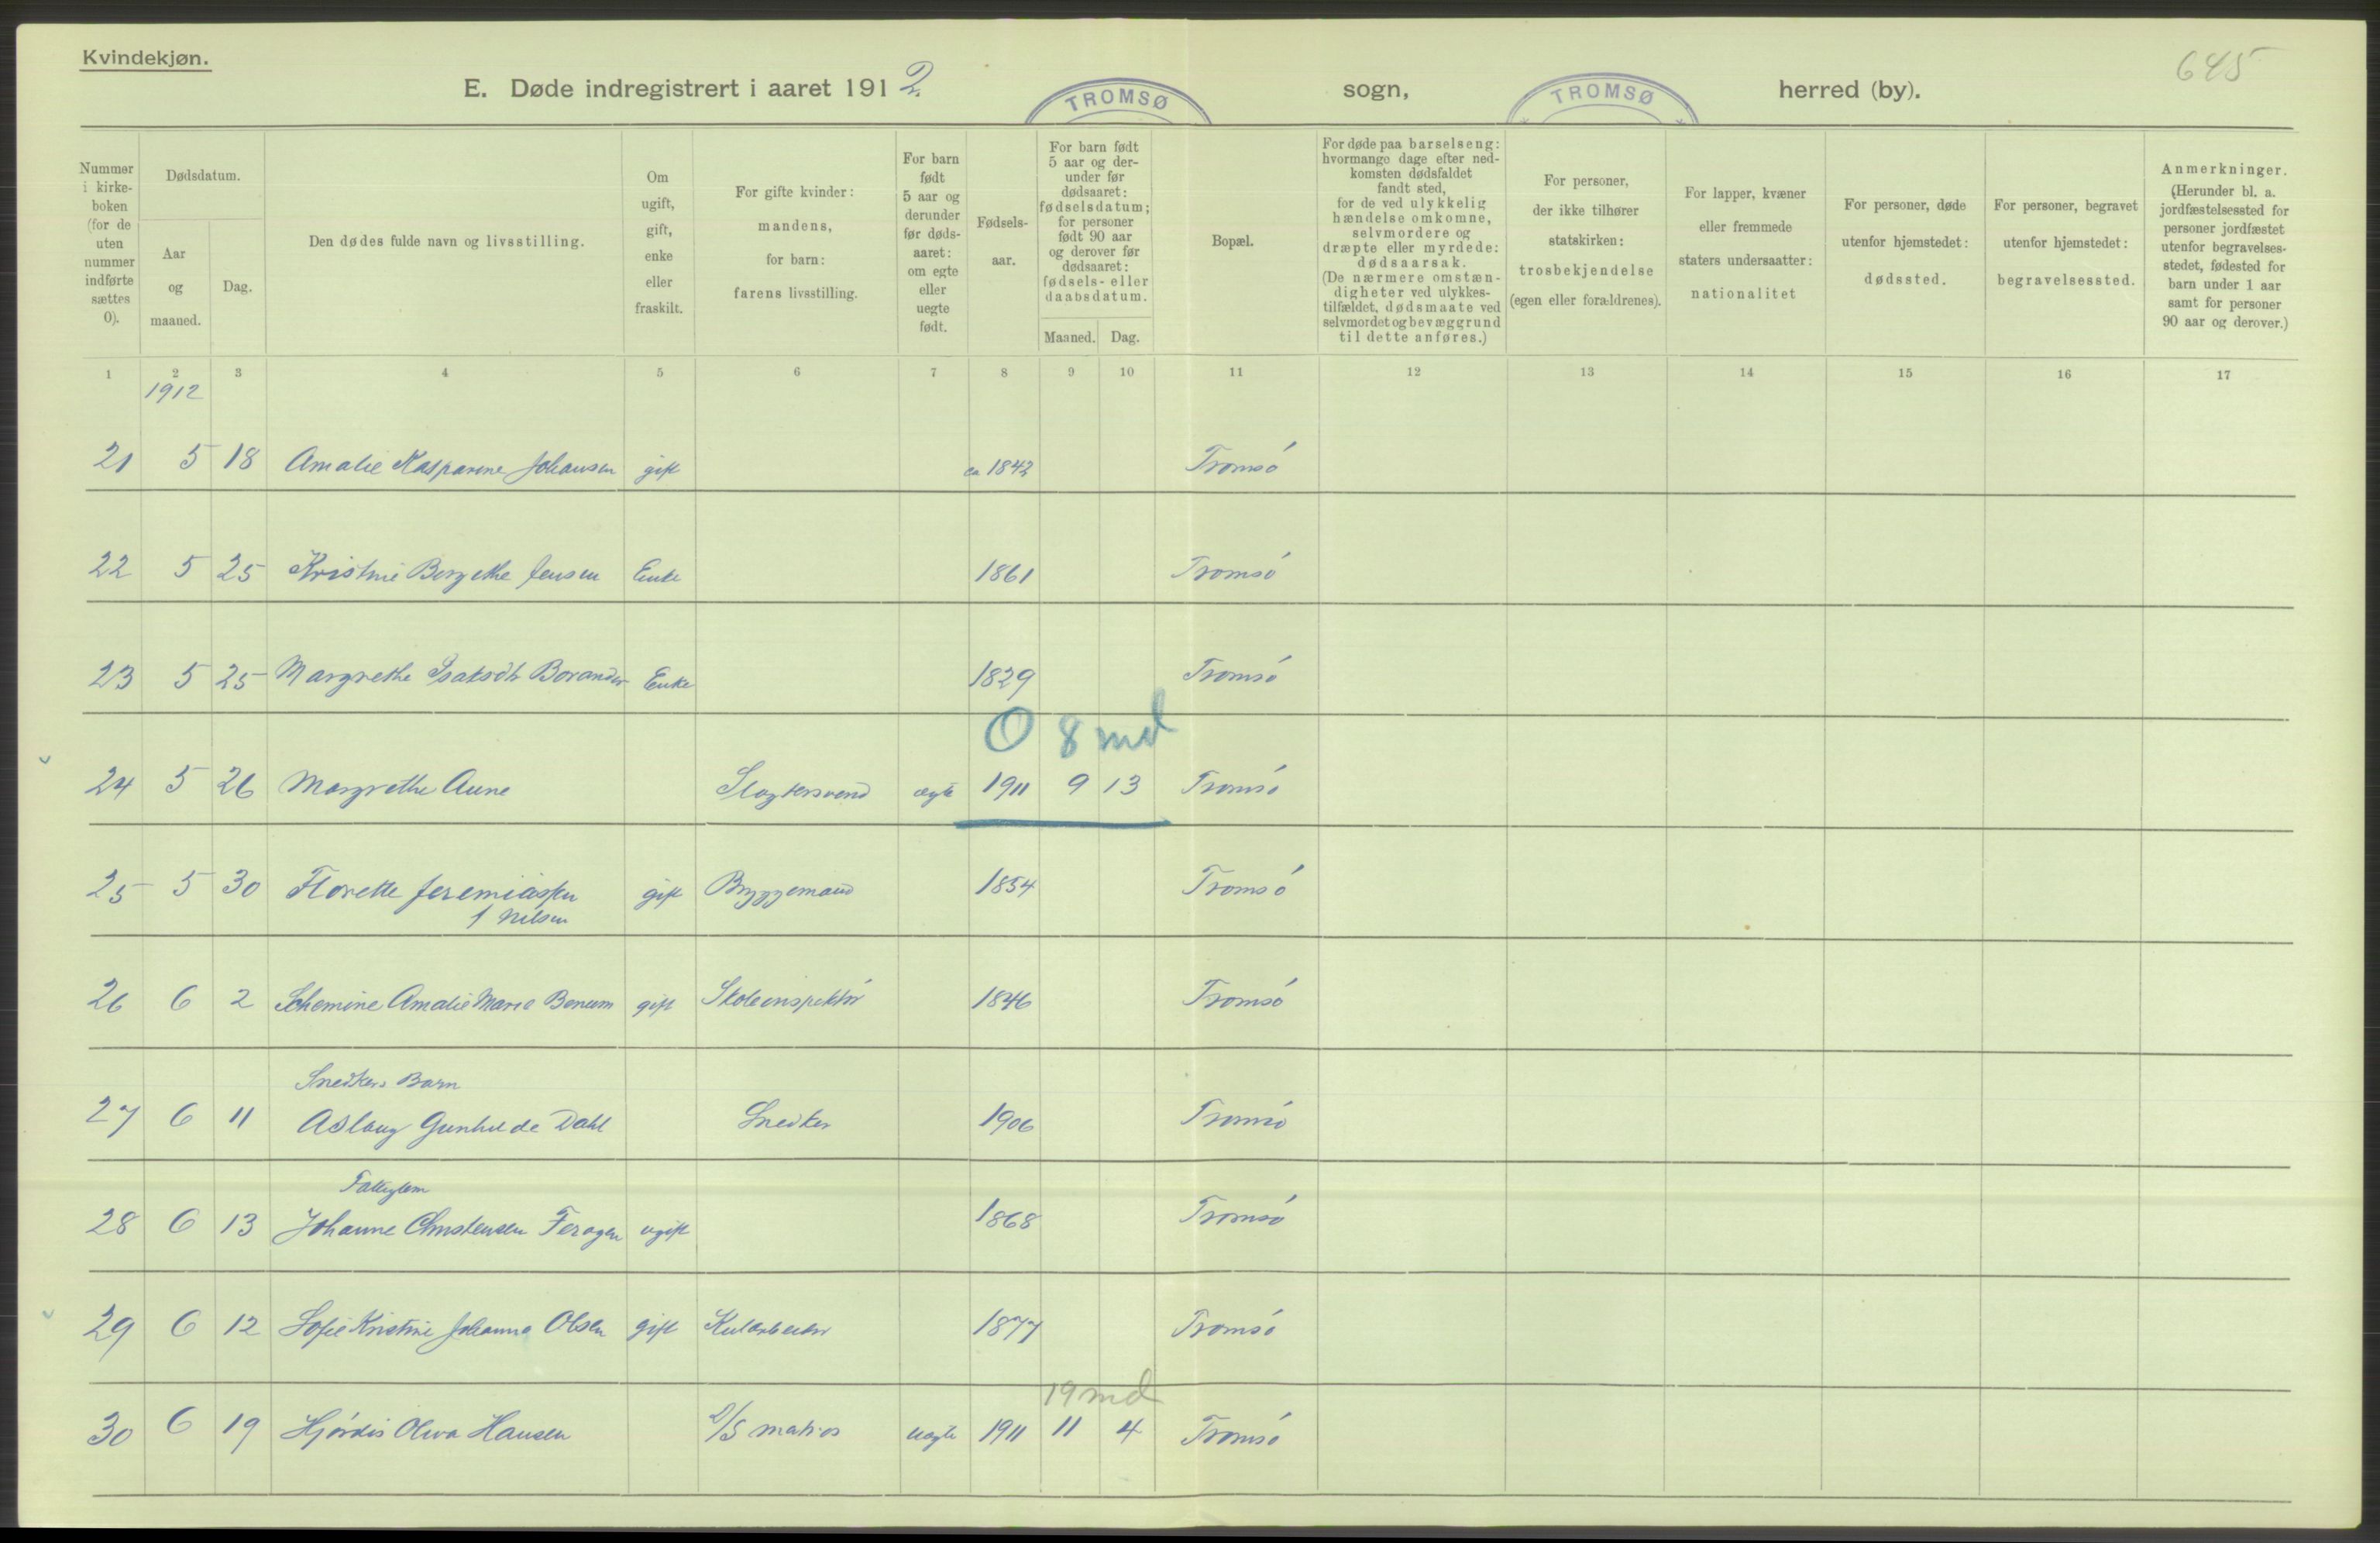 Kvindekjøn.
645
E. Døde indregistrert i aaret 1912 TROMSØ sogn, TROMSØ herred (by).
Nummer i kirke- boken (for de uten nummer indførte sættes 0).
Dødsdatum.
Aar og maaned.
Dag.
Den dødes fulde navn og livsstilling.
Om ugift, gift, enke eller fraskilt.
For gifte kvinder: mandens, for barn: farens livsstilling.
For barn født 5 aar og derunder før døds- aaret: om egte eller uegte født.
Fødsels- aar.
For barn født 5 aar og der- under før dødsaaret: fødselsdatum; for personer født 90 aar og derover før dødsaaret: fødsels- eller daabsdatum.
Maaned. Dag.
Bopæl.
For døde paa barselseng: hvormange dage efter ned- komsten dødsfaldet fandt sted, for de ved ulykkelig hændelse omkomne, selvmordere og dræpte eller myrdede: dødsaarsak. (De nærmere omstæn- digheter ved ulykkes- tilfældet, dødsmaate ved selvmordet og bevæggrund til dette anføres.)
For personer, der ikke tilhører statskirken: trosbekjendelse (egen eller forældrenes).
For lapper, kvæner eller fremmede staters undersaatter: nationalitet
For personer, døde utenfor hjemstedet: dødssted.
For personer, begravet utenfor hjemstedet: begravelsessted.
Anmerkninger. (Herunder bl. a. jordfæstelsessted for personer jordfæstet utenfor begravelses- stedet, fødested for barn under 1 aar samt for personer 90 aar og derover.)
1 2 3 4 5 6 7 8 9 10 11 12 13 14 15 16 17
1912
21 5 18 Amalie Kasparine Johansen gift ca 1842 Tromsø
22 5 25 Kristine Bergethe Jensen Enke 1861 Tromsø
23 5 25 Margrethe Isaksdtr Enke 1829 Tromsø
0 8 md
24 5 26 Margrethe Aune Slagtersvend ægte 1911 9 13 Tromsø
25 5 30 Florette Jeremiassen gift Bryggemand 1854 Tromsø
f Nilsen
26 6 2 Amalie Marie gift Skoleinspektør 1846 Tromsø
Snedkers Barn
27 6 11 Aslaug Gunhilde Dahl Snedker 1906 Tromsø
Fattiglem
28 6 13 Johanne Christensen Feragen ugift 1868 Tromsø
29 6 12 Sofie Kristine Johanna Olsen gift Kularbeider 1877 Tromsø
19 md
30 6 19 Hjørdis Oliva Hansen D/S matros uægte 1911 11 4 Tromsø